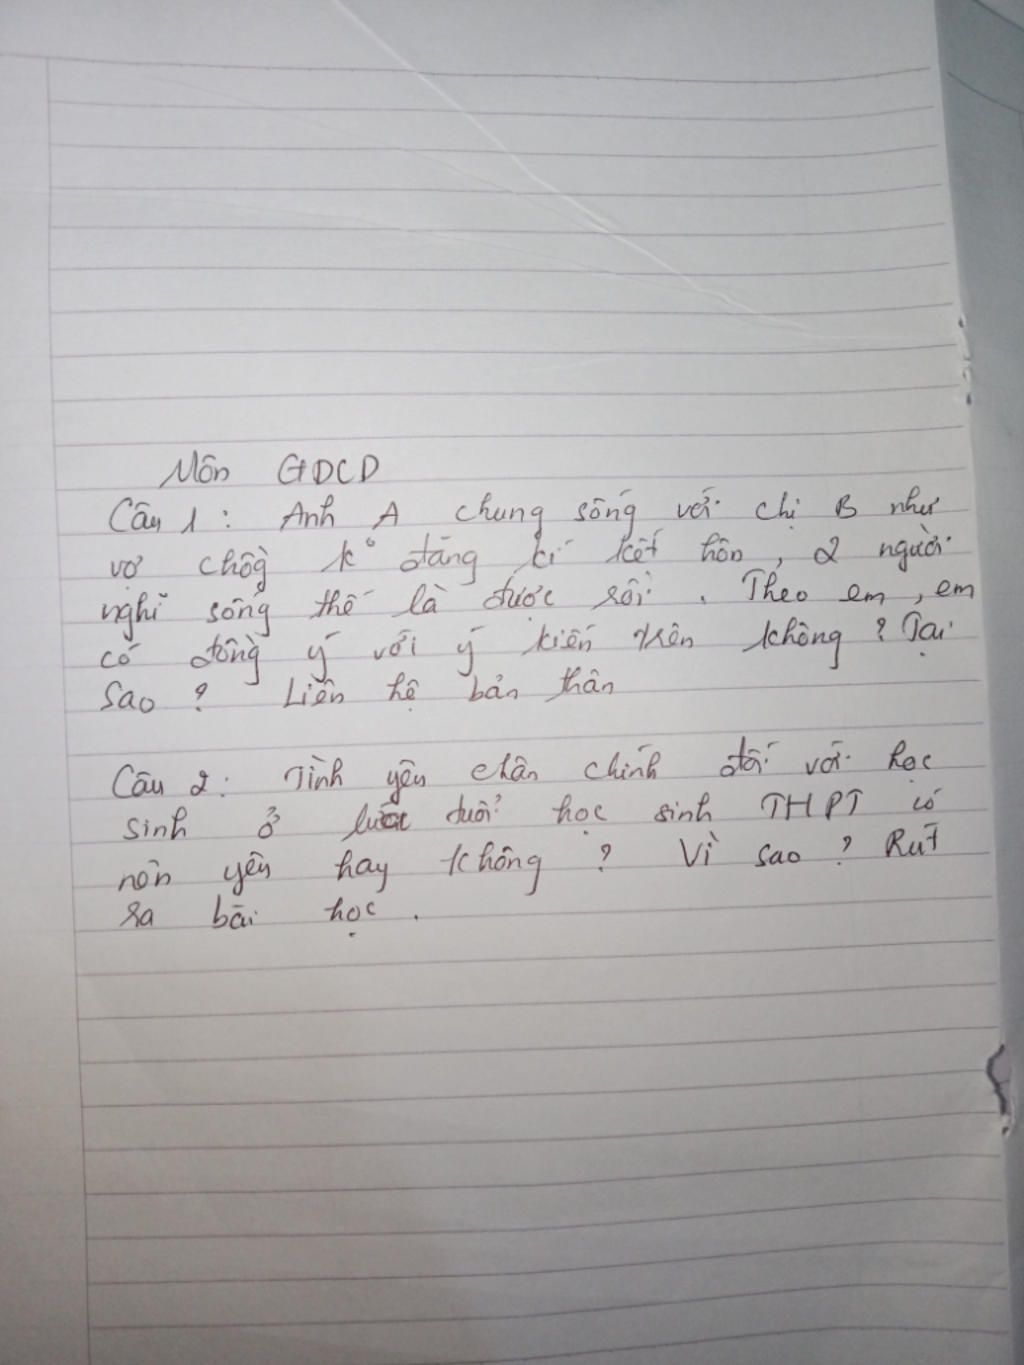 Môn GDCD
Câu 1: Anh A chung sống với chị B như
vợ chồg k° đăng kí kết hôn, 2 người
nghĩ sống thế là được rồi. Theo em, em
có đồng ý với ý kiến trên không? Tại
sao? Liên hệ bản thân
Câu 2: Tình yêu chân chính đối với học
sinh ở lứa tuổi học sinh THPT có
nên yêu hay không? Vì sao? Rút
ra bài học.